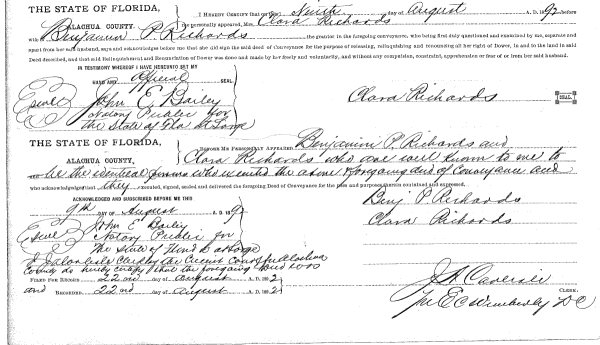 THE STATE OF FLORIDA,
ALACHUA COUNTY.
I HEREBY CERTIFY that on this Ninth day of August A. D. 1892, before
me personally appeared, Mrs. Clara Richards
wife Benjamin P. Richards the grantor in the foregoing conveyance, who being first duly questioned and examined by me, separate and
apart from her said husband, says and acknowledges before me that she did sign the said deed of Conveyance for the purpose of releasing, relinquishing and renouncing all her right of Dower, in and to the land in said
Deed described, and that said Relinquishment and Renunciation of Dower was done and made by her freely and voluntarily, and without any compulsion, constraint, apprehension or fear of or from her said husband.
IN TESTIMONY WHEREOF I HAVE HEREUNTO SET MY
HAND AND official SEAL
John E Bailey
Notary Public for
the State of Fla at Large
Clara Richards
SEAL
THE STATE OF FLORIDA,
ALACHUA COUNTY,
BEFORE ME PERSONALLY APPEARED Benjamin P. Richards and
Clara Richards who are well known to me to
be the identical persons who executed the above & foregoing deed of Conveyance and
who acknowledged that they executed, signed, sealed and delivered the foregoing Deed of Conveyance for the uses and purposes therein contained and expressed.
ACKNOWLEDGED AND SUBSCRIBED BEFORE ME THIS
9th DAY OF August 1892
Benj P. Richards
Clara Richards
John E Bailey
Notary Public for
The State of at Large
I Clerk of the Circuit Court Alachua
County do hereby certify that the foregoing Deed was
FILED FOR RECORD 22nd day of August A. D. 1892
and RECORDED 22nd day of August A. D. 1892
J A Carlisle
CLERK.
E C Wimberly D C